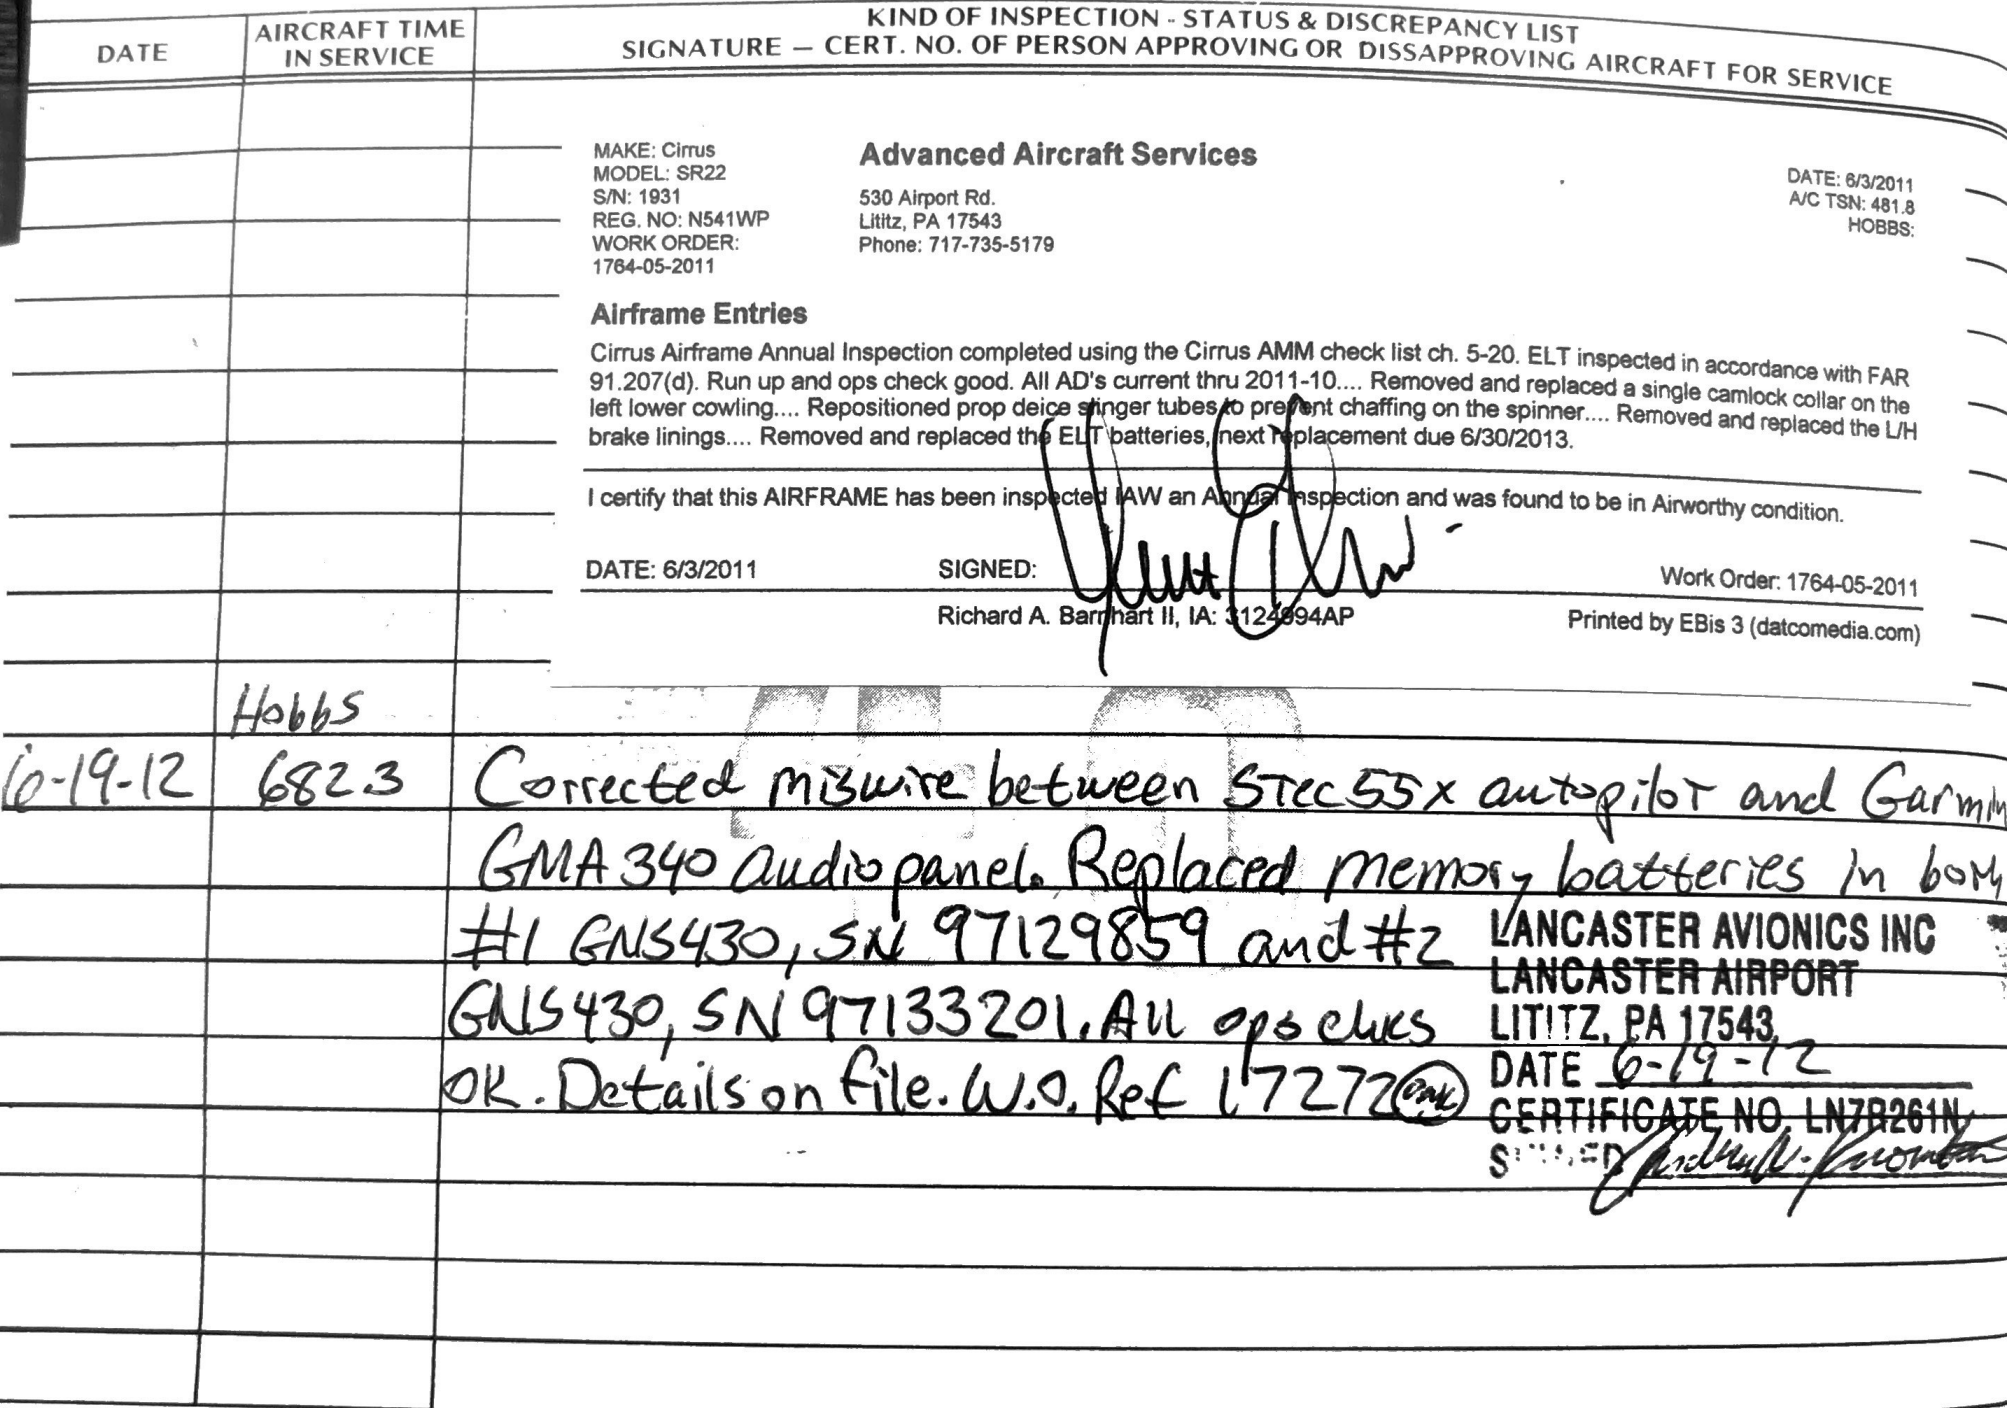 DATE
AIRCRAFT TIME
IN SERVICE
KIND OF INSPECTION - STATUS & DISCREPANCY LIST
SIGNATURE — CERT. NO. OF PERSON APPROVING OR DISSAPPROVING AIRCRAFT FOR SERVICE
MAKE: Cirrus
MODEL: SR22
S/N: 1931
REG. NO: N541WP
WORK ORDER:
1764-05-2011
Advanced Aircraft Services
530 Airport Rd.
Lititz, PA 17543
Phone: 717-735-5179
DATE: 6/3/2011
A/C TSN: 481.8
HOBBS:
Airframe Entries
Cirrus Airframe Annual Inspection completed using the Cirrus AMM check list ch. 5-20. ELT inspected in accordance with FAR
91.207(d). Run up and ops check good. All AD's current thru 2011-10.... Removed and replaced a single camlock collar on the
left lower cowling.... Repositioned prop deice stinger tubes to prevent chaffing on the spinner.... Removed and replaced the L/H
brake linings.... Removed and replaced the ELT batteries, next replacement due 6/30/2013.
I certify that this AIRFRAME has been inspected IAW an Annual Inspection and was found to be in Airworthy condition.
DATE: 6/3/2011
SIGNED:
Work Order: 1764-05-2011
Richard A. Barnhart II, IA: 3124994AP
Printed by EBis 3 (datcomedia.com)
Hobbs
6-19-12 682.3 Corrected miswire between STec 55x autopilot and Garmin
GMA 340 audio panel. Replaced memory batteries in both
#1 GNS430, SN 97129859 and #2
GNS430, SN 97133201. All ops chks
OK. Details on file. W.O. Ref 17272
LANCASTER AVIONICS INC
LANCASTER AIRPORT
LITITZ, PA 17543
DATE 6-19-12
CERTIFICATE NO. LN7R261N
SIGNED